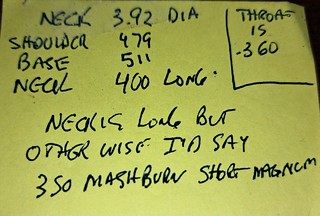 NECK 3.92 DIA
SHOULDER 479
BASE 511
NECK 400 LONG.
THROAT
IS
-360
NECK IS LONG BUT
OTHER WISE I'D SAY
350 MASHBURN SHORT MAGNUM